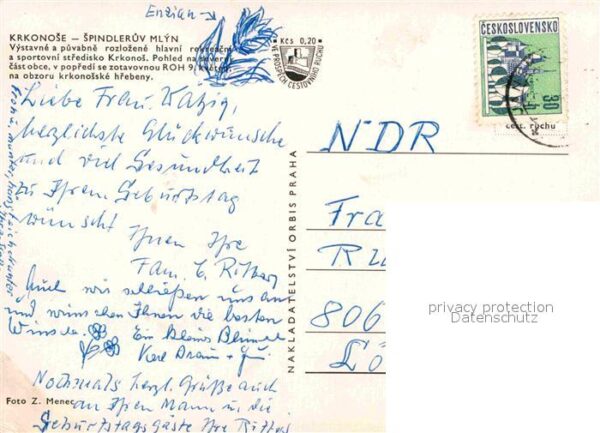 Enzian →
KRKONOŠE — ŠPINDLERŮV MLÝN
Výstavné a půvabně rozložené hlavní rekreační
a sportovní středisko Krkonoš. Pohled na severní
část obce, v popředí se zotavovnou ROH 9. květen,
na obzoru krkonošské hřebeny.
Kčs 0,20
VE PROSPĚCH CESTOVNÍHO RUCHU
ČESKOSLOVENSKO
30 h
cest. ruchu
Liebe Frau Kätzig,
herzlichste Glückwünsche
und viel Gesundheit
zu Ihrem Geburtstag
wünscht
Ihnen Ihre
Fam.
Auch wir schließen uns an
und wünschen Ihnen die besten
Wünsche. Ein kleines Blümel
Karl
Nochmals herzl. Grüße auch
an Ihren Mann u. die
Geburtstagsgäste Ihre
NAKLADATELSTVÍ ORBIS PRAHA
NDR
Fra
806
Lö
privacy protection
Datenschutz
Foto Z. Menec